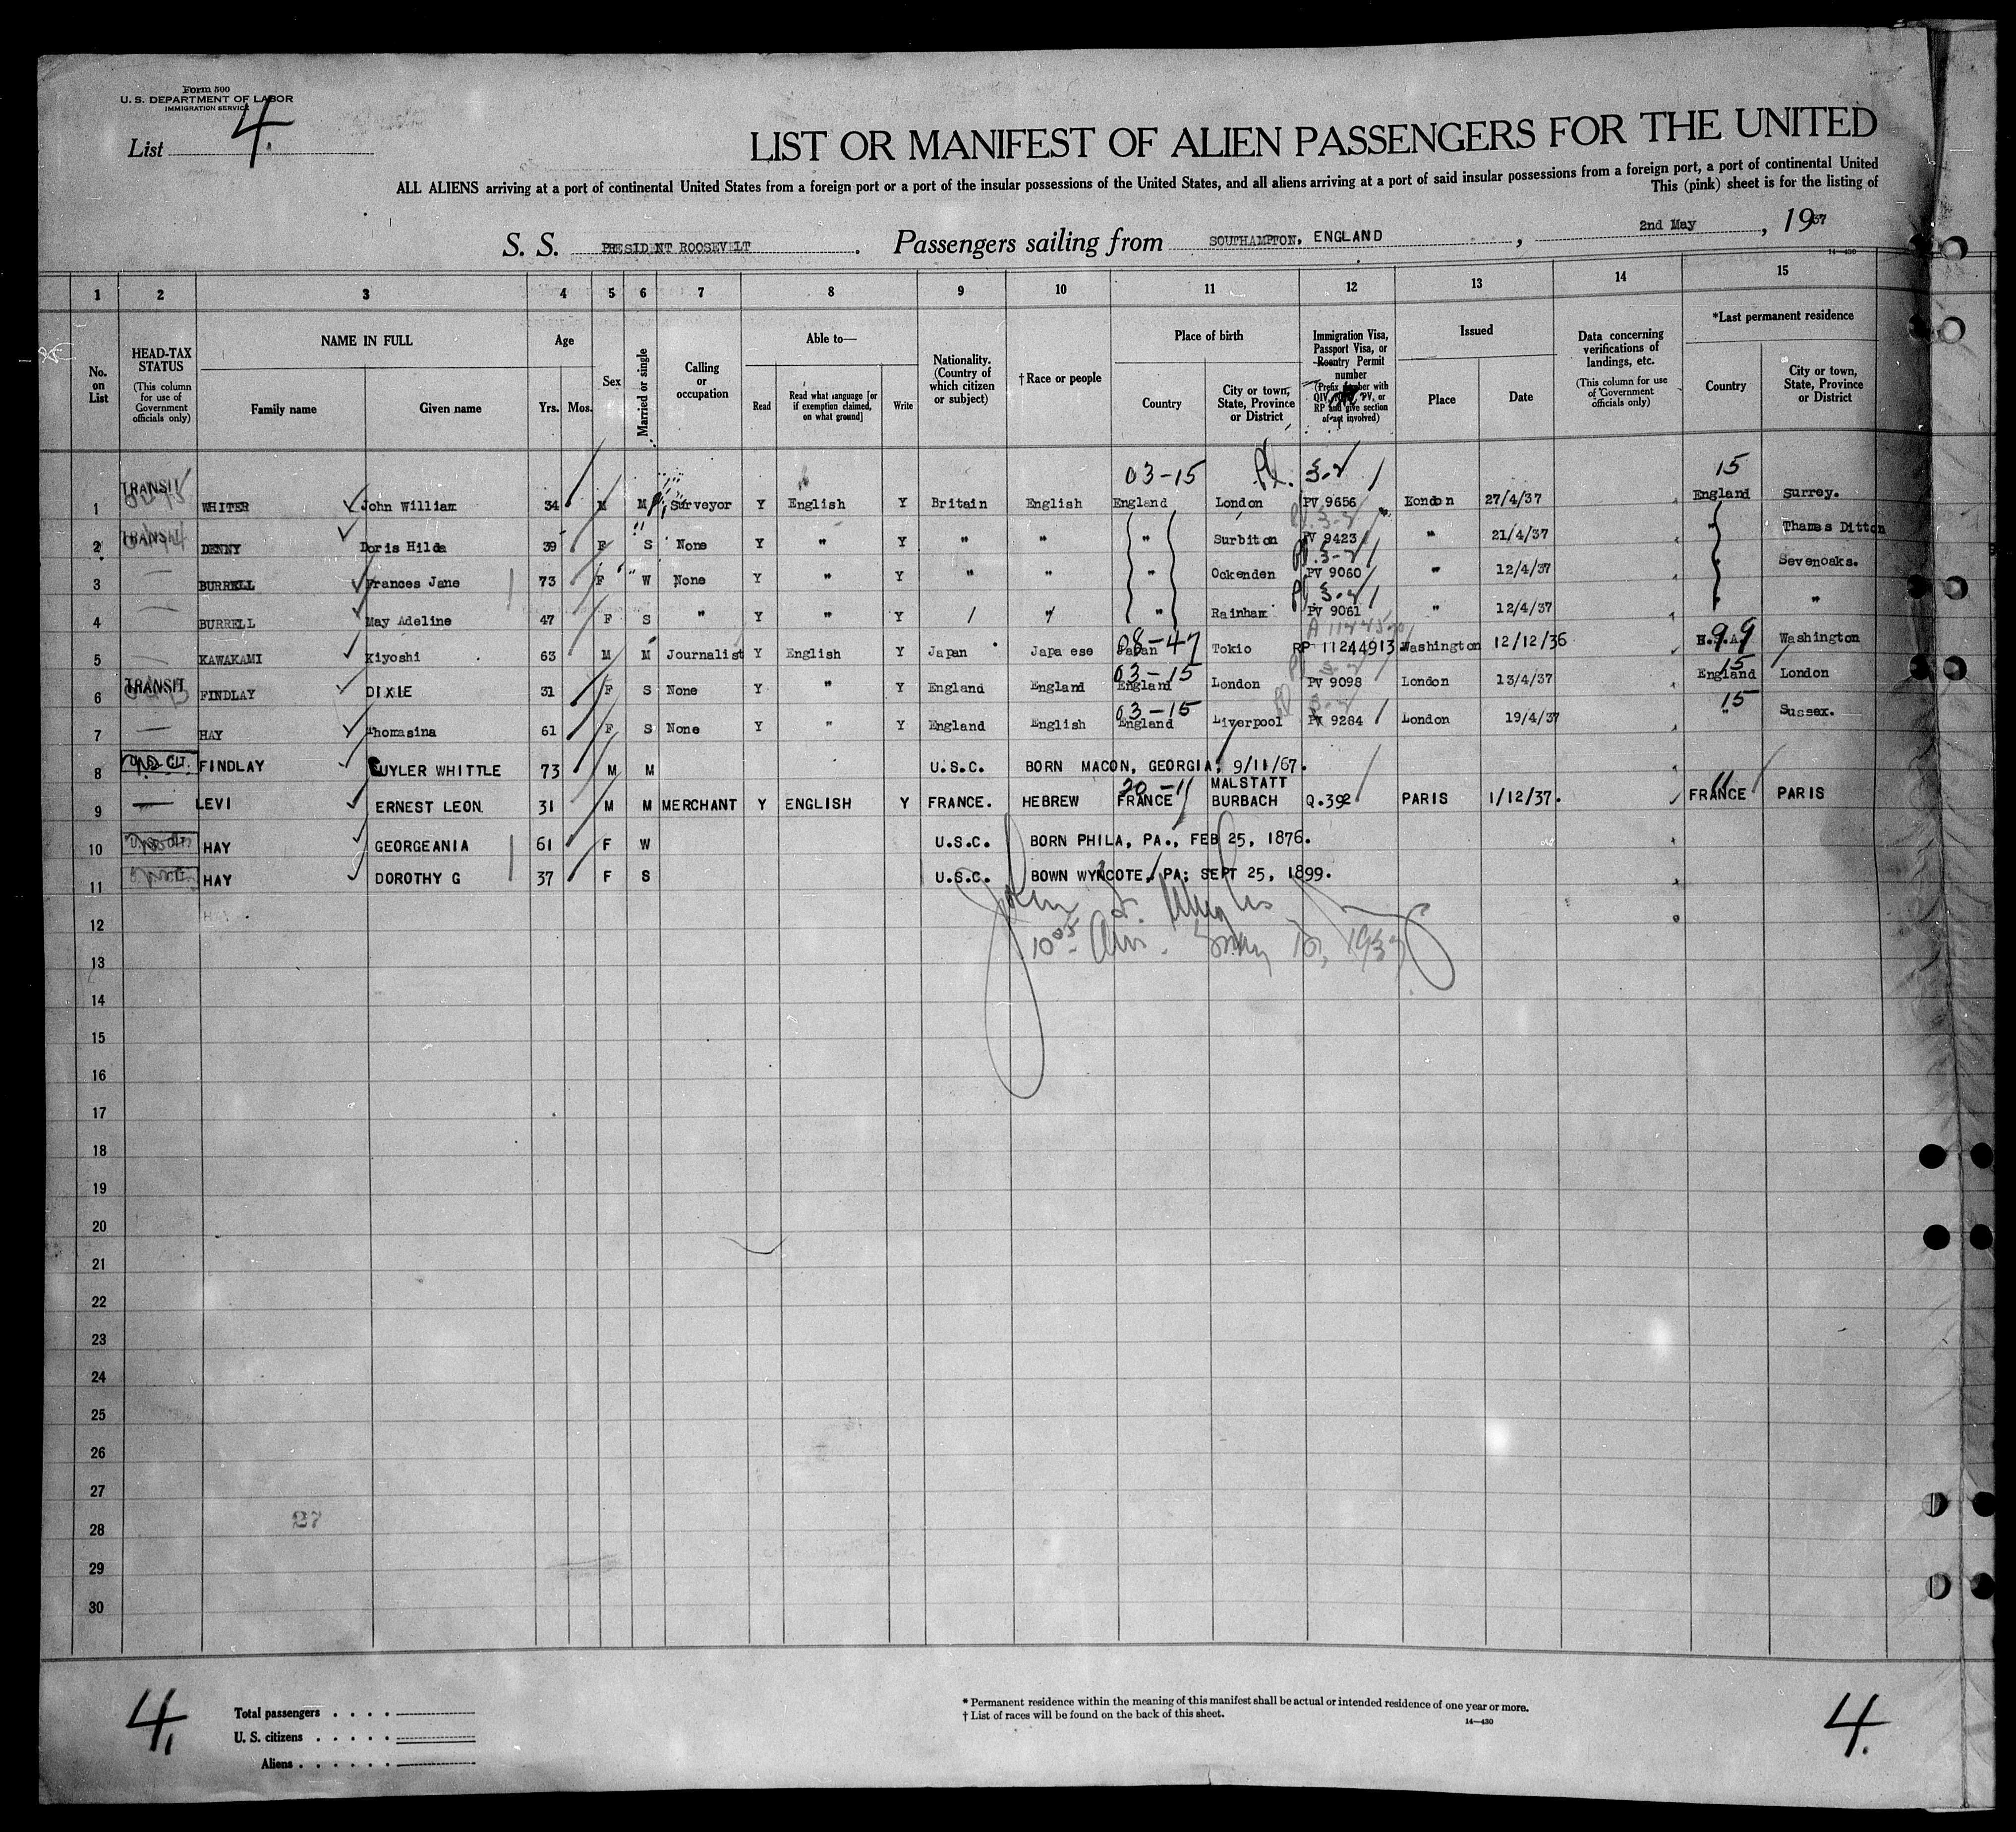 Form 500
U. S. DEPARTMENT OF LABOR
IMMIGRATION SERVICE
List 4.
LIST OR MANIFEST OF ALIEN PASSENGERS FOR THE UNITED
ALL ALIENS arriving at a port of continental United States from a foreign port or a port of the insular possessions of the United States, and all aliens arriving at a port of said insular possessions from a foreign port, a port of continental United
This (pink) sheet is for the listing of
S. S. PRESIDENT ROOSEVELT. Passengers sailing from SOUTHAMPTON, ENGLAND, 2nd May, 1937
14—430
1 2 3 4 5 6 7 8 9 10 11 12 13 14 15
No. on List
HEAD-TAX STATUS (This column for use of Government officials only)
NAME IN FULL Family name Given name
Age Yrs. Mos.
Sex
Married or single
Calling or occupation
Able to— Read Read what language [or if exemption claimed, on what ground] Write
Nationality. (Country of which citizen or subject)
†Race or people
Place of birth Country City or town, State, Province or District
Immigration Visa, Passport Visa, or Reentry Permit number (Prefix number with QIV, PV, or RP and give section of act involved)
Issued Place Date
Data concerning verifications of landings, etc. (This column for use of Government officials only)
*Last permanent residence Country City or town, State, Province or District
03-15 3-2 15
1 TRANSIT WHITER John William 34 M M Surveyor Y English Y Britain English England London PV 9656 London 27/4/37 England Surrey.
3-2
2 TRANSIT DENNY Doris Hilda 39 F S None Y " Y " " " Surbiton PV 9423 " 21/4/37 " Thames Ditton
3-2
3 BURRELL Frances Jane 73 F W None Y " Y " " " Ockenden PV 9060 " 12/4/37 Sevenoaks.
3-2
4 BURRELL May Adeline 47 F S " Y " Y / " " Rainham PV 9061 " 12/4/37 " "
08-47 99
5 KAWAKAMI Kiyoshi 63 M M Journalist Y English Y Japan Japa ese Japan Tokio RP 11244913 Washington 12/12/36 U.S.A. Washington
03-15 3-2 15
6 TRANSIT FINDLAY DIXIE 31 F S None Y " Y England England England London PV 9098 London 13/4/37 England London
03-15 3-2 15
7 HAY Thomasina 61 F S None Y " Y England English England Liverpool PV 9284 London 19/4/37 " Sussex.
8 U.S. CIT. FINDLAY CUYLER WHITTLE 73 M M U.S.C. BORN MACON, GEORGIA, 9/11/67.
20-11 11
9 LEVI ERNEST LEON 31 M M MERCHANT Y ENGLISH Y FRANCE. HEBREW FRANCE MALSTATT BURBACH Q.392 PARIS 1/12/37. FRANCE PARIS
10 HAY GEORGEANIA 61 F W U.S.C. BORN PHILA, PA., FEB 25, 1876.
11 HAY DOROTHY G 37 F S U.S.C. BOWN WYNCOTE, PA; SEPT 25, 1899.
12
13
14
15
16
17
18
19
20
21
22
23
24
25
26
27
28
27
29
30
4.
Total passengers
U. S. citizens
Aliens
* Permanent residence within the meaning of this manifest shall be actual or intended residence of one year or more.
† List of races will be found on the back of this sheet.
14—430
4.